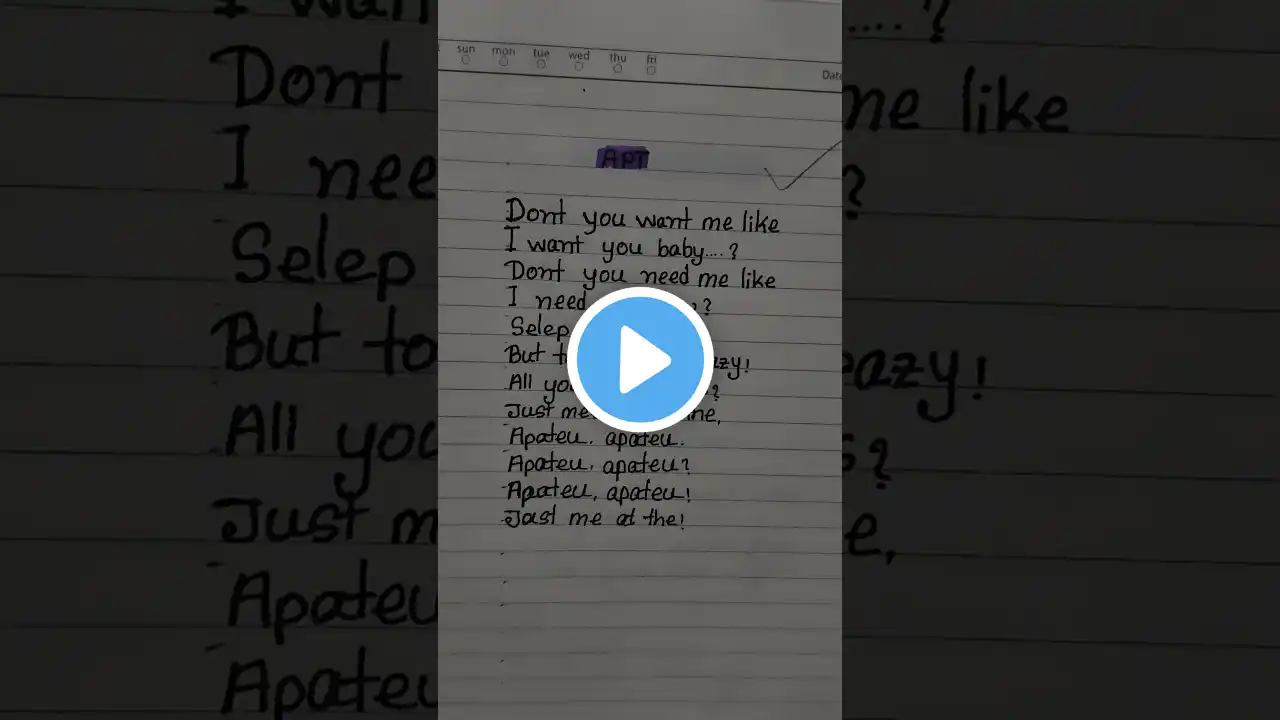 sun mon tue wed thu fri
Date
APT
Dont you want me like
I want you baby....?
Dont you need me like
I need ?
Selep
But to azy!
All you ?
Just me ne,
Apateu. apateu.
Apateu. apateu?
Apateu, apateu!
Jast me at the!